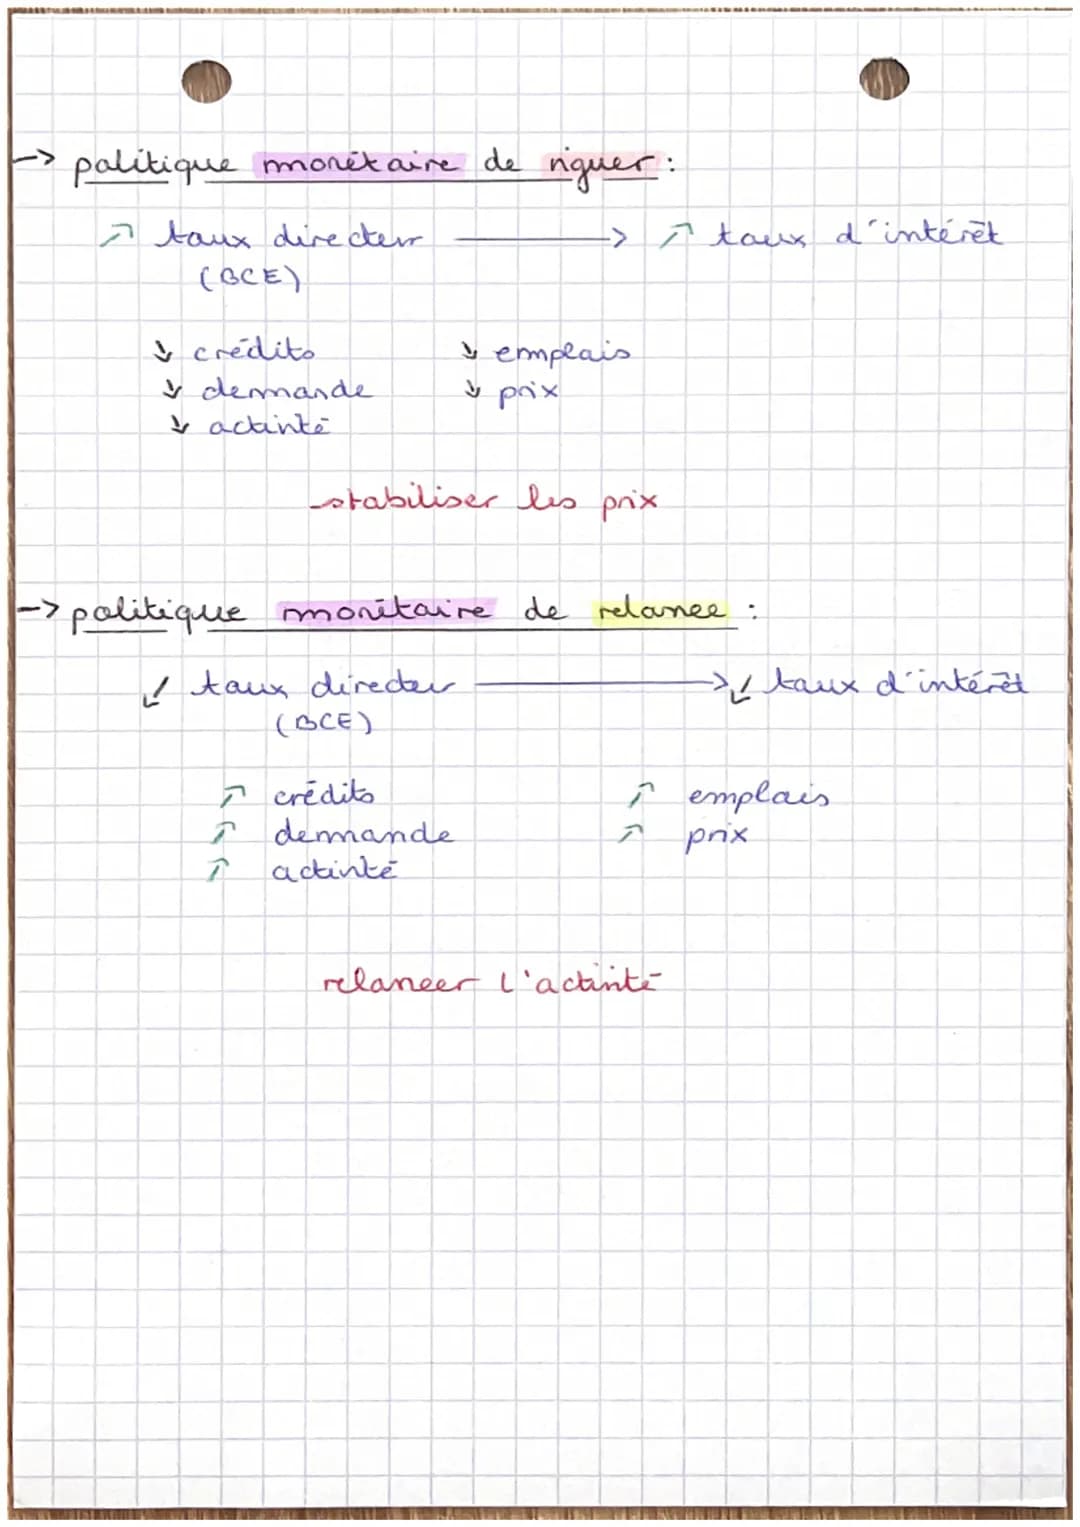 -> politique monétaire de riguer :
↗ taux directeur ⟶ ↗ taux d'intérêt
(BCE)
↘ crédits ↘ emplois
↘ demande ↘ prix
↘ activité
stabiliser les prix
-> politique monétaire de relance :
↙ taux directeur ⟶ ↙ taux d'intérêt
(BCE)
↗ crédits ↗ emplois
↗ demande ↗ prix
↗ activité
relancer l'activité